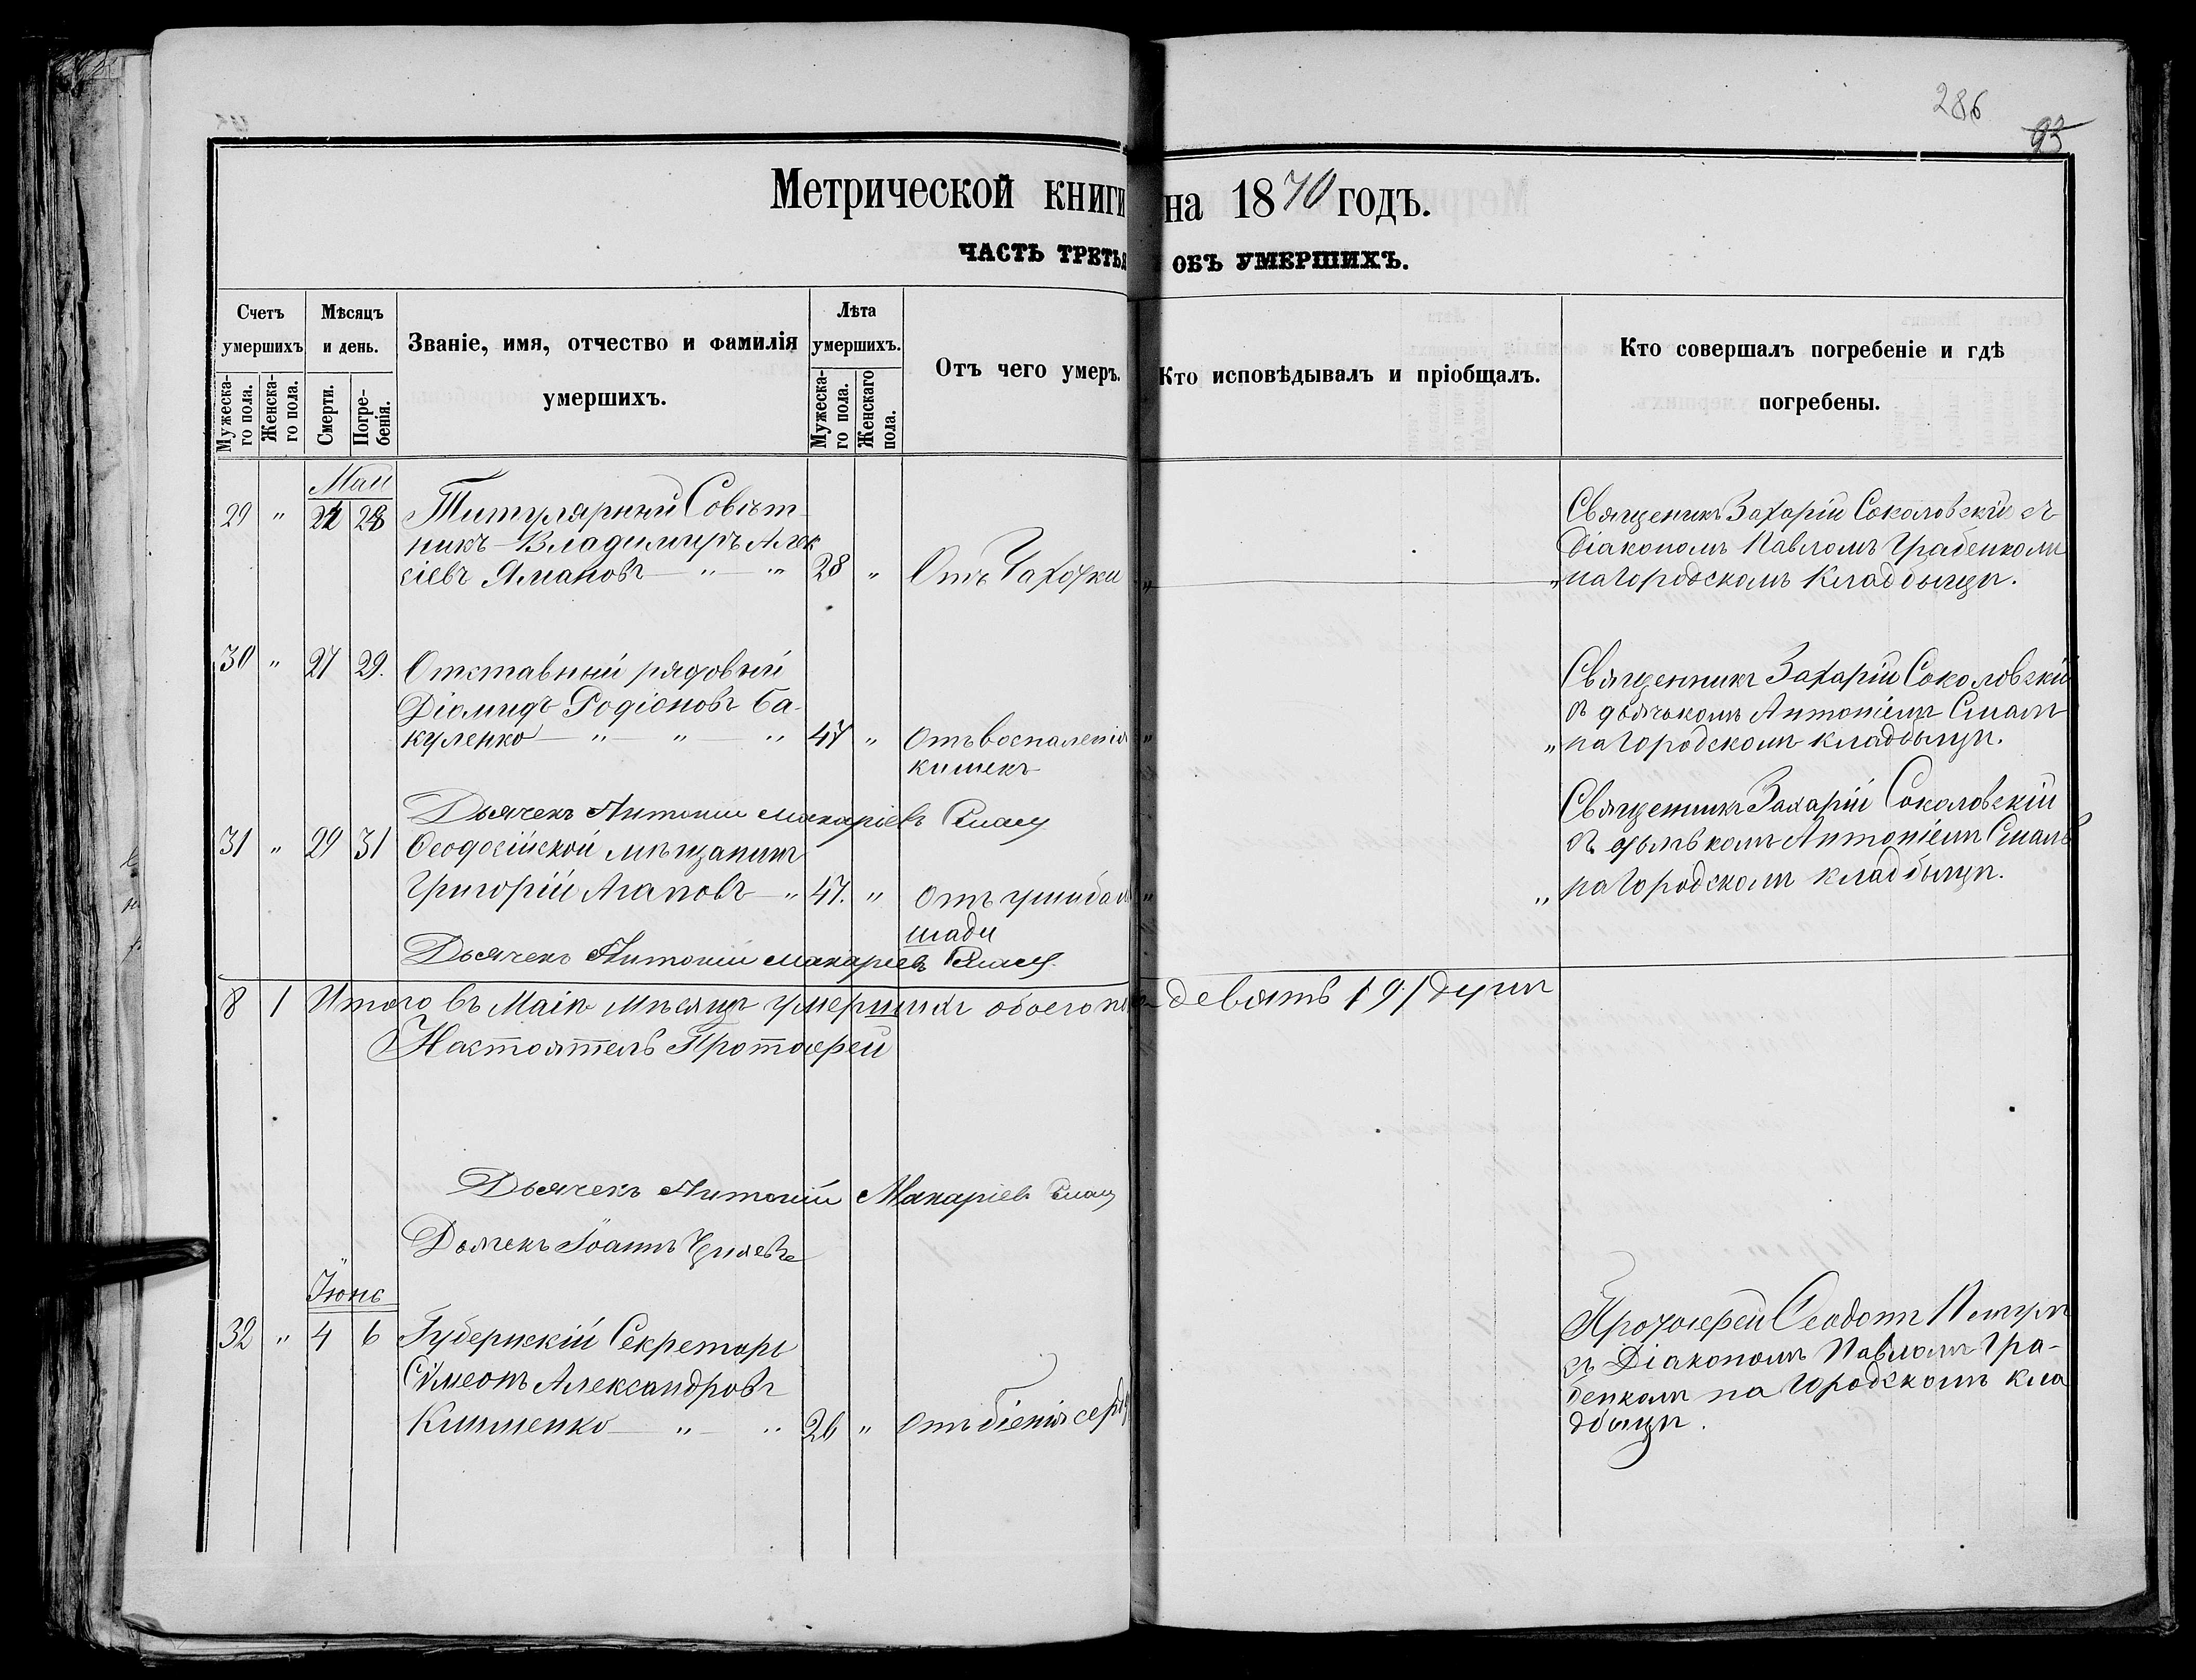 286
93
Метрической книги на 1870 годъ.
ЧАСТЬ ТРЕТЬЯ ОБЪ УМЕРШИХЪ.
Счетъ умершихъ
Мужеска-
го пола.
Женска-
го пола.
Мѣсяцъ
и день.
Смерти.
Погре-
бенія.
Званіе, имя, отчество и фамилія
умершихъ.
Лѣта
умершихъ.
Мужеска-
го пола.
Женскаго
пола.
Отъ чего умеръ.
Кто исповѣдывалъ и пріобщалъ.
Кто совершалъ погребеніе и гдѣ
погребены.
Маи
29 " 28 Титулярный Совѣт-
никъ Владимиръ Алек
сіевъ Ямановъ 28 " Отъ Чахотки
Священикъ Захарій Соколовскій
Діакономъ Павломъ Грабенкомъ
на Городскомъ Кладбыщѣ.
30 " 27 29. Отставный рядовый
Діомидъ Родіоновъ Ба-
куленко " " " 47 " Отъ воспаленія
кишекъ
Священникъ Захарій Соколовскій
съ дьячкомъ Антоніемъ Смалъ
на Городскомъ кладбыщѣ.
Дьячекъ Антоній Макаріевъ
31 " 29 31 Ѳеодосійской мѣщанинъ
Григорій Агаповъ " 47. " отъ ушиба ло
шади
Священникъ Захарій Соколовскій
съ дьячкомъ Антоніемъ Смалъ
на Городскомъ кладбыщѣ.
Дьячекъ Антоній Макаріевъ
8 1 Итого въ Маіѣ мѣсяцѣ умершихъ обоего пола девять /9/ душъ
Настоятель Протоіерей
Дьячекъ Антоній Макаріевъ
Дьячекъ Іоаннъ
Іюнь
32 " 4 6 Губернскій Секретарь
Сѵмеонъ Александровъ
Клименко " " 26 " отъ біенія серд
Протоіерей Ѳеодотъ
съ Діакономъ Павломъ Гра-
бенкомъ на Городскомъ кла
дбыщѣ.